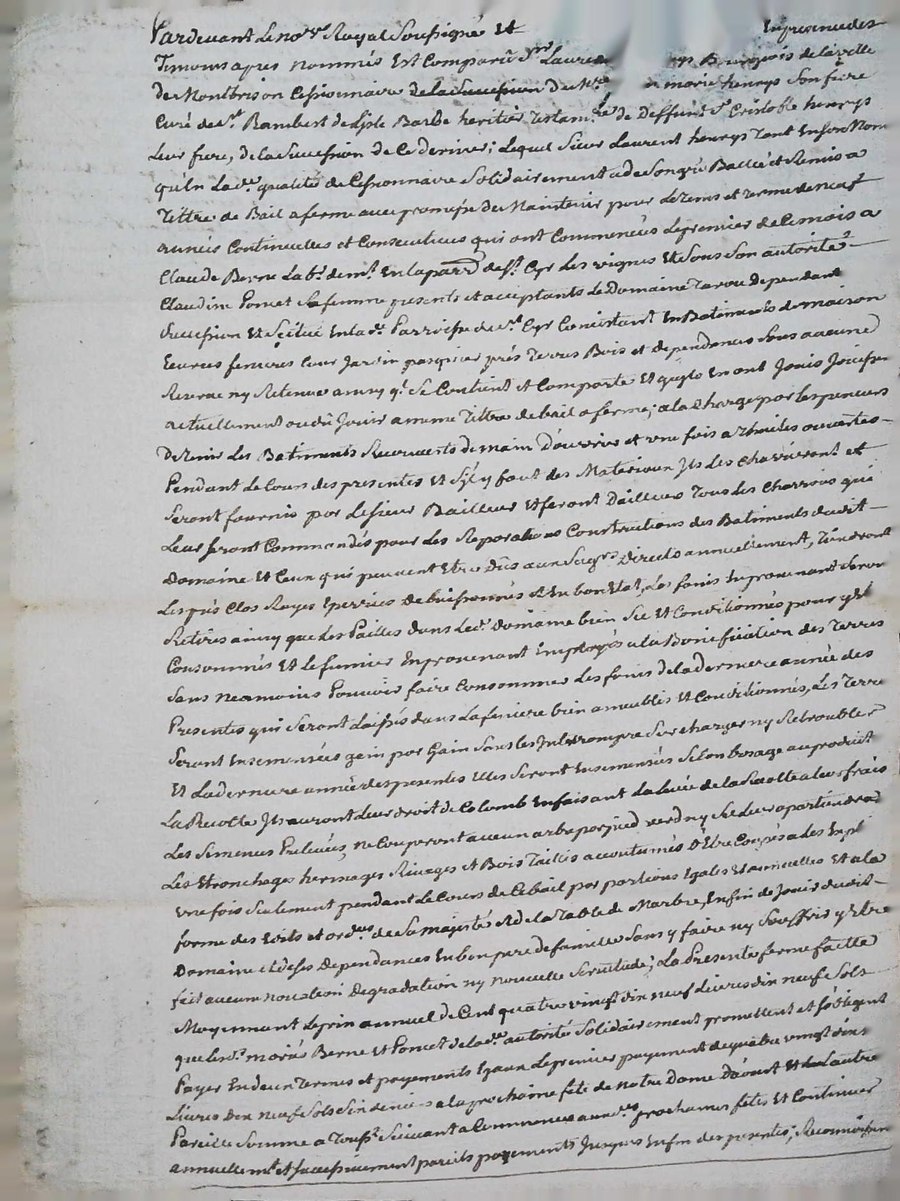 Pardevant Le no.re Royal Soussigné Et En presence des
Temoins apres nommés Est Comparu S.r Laurens Bourgeois de la ville
de Montbrison Cessionnaire de la Succession de M.re marie henrys Son frere
Curé de S.t Rambert de Lisle Barbe heritier Testam.re de Deffunt S.r Cristofle henrys
Leur frere, de la Succession de Ce dernier; Lequel Sieur Laurent henrys Tant En Son Nom
qu'En La d.e qualité de Cessionnaire Solidairement a de Son gré Baillé et Remis a
Tiltre de Bail a ferme avec promesse de Maintenir pour Le Tems et terme de neuf
années Continuelles et Consecutives qui ont Commencées Le premier de Ce mois a
Claude Berne Lab.r dem.t En la par.sse de S.t Cyr Les vignes Et Sous Son autorité
Claudine Poncet Sa femme presents et acceptants Le Domaine Dependant
Succession Et Scitué En la d.e Parroisse de S.t Cyr Consistant En Batiments de maison
Ecuries fenieres Cour Jardin pasquier prés Terres Bois et dependances Sans aucune
Reserve ny Retenue ainsy q.l Se Contient et Comporte Et qu'ils En ont Joui Jouissent
actuellement ou dû Jouir a meme Tiltre de bail a ferme; a la Charge par les preneurs
de Tenir Les Batiments Recouverts de main D'ouvrier et une fois a Thuiles ouvertes
Pendant Le Cours des presentes Et S'il y faut des Materiaux Ils Les Charieront et
Seront fournis par Le Sieur Bailleur Et feront D'ailleurs Tous Les Charrois qui
Leur Seront Commandés pour Les Reparations Constructions des Batiments du dit
Domaine Et Ceux qui peuvent Etre Dûs au Seig.r Direct annuellement, Tiendront
Les prés Clos Rayes Eperriés De buissonnés Et En bon Etat, Les foins En provenant Seront
Retirés ainsy que Les Pailles dans Le d.t Domaine bien Sec Et Conditionnés pour y Et
Consommés Et Le fumier En provenant Employés a la Bonification des Terres
Sans Neamoins Pouvoir faire Consommer Les foins de la derniere année des
Presentes qui Seront Laissés dans La feniere bien ameublés Et Conditionnés, Les Terre
Seront Ensemensées gain par Gain Sans les Interrompre Surcharger ny Retroubler
Et La derniere année des presentes Elles Seront Ensemensés Selon L'usage au produit
La Recolte Ils auront Leur droit de Colomb En faisant La Levée de la Recolte a leurs frais
Les Semences Prelevées, ne Couperont aucun arbre par pied verd ny Sec Leur apartiendra
Les Etronchages hermages Rivages et Bois Taillis accoutumés D'Etre Coupés a des
une fois Seulement pendant Le Cours de Ce bail par portions Egales Et annuelles Et a la
forme des Edits et ord.ces de Sa majesté Et de la Table de Marbre, Enfin de Jouir du dit
Domaine et de Ses Dependances En bon pere de famille Sans y faire ny Souffrir y Etre
fait aucune Degradation ny nouvelle Servitude; La Presente ferme faitte
Moyennant Le prix annuel de Cent quatre vingt dix neuf Livres dix neuf Sols
que Les d.s mariés Berne Et Poncet de la d.e autorité Solidairement promettent et S'obligent
Payer En deux Termes et payements Egaux Le premier payement de quatre vingt dix
Livres Dix neuf Sols Six deniers a la prochaine fête de Notre Dame D'aout Et L'autre
Pareille Somme a Touss.ts Suivant a Commencer aux d.es prochaines fêtes Et Continuer
annuellem.t et Successivement pareils payements Jusques En fin des presentes; Reconnoissen